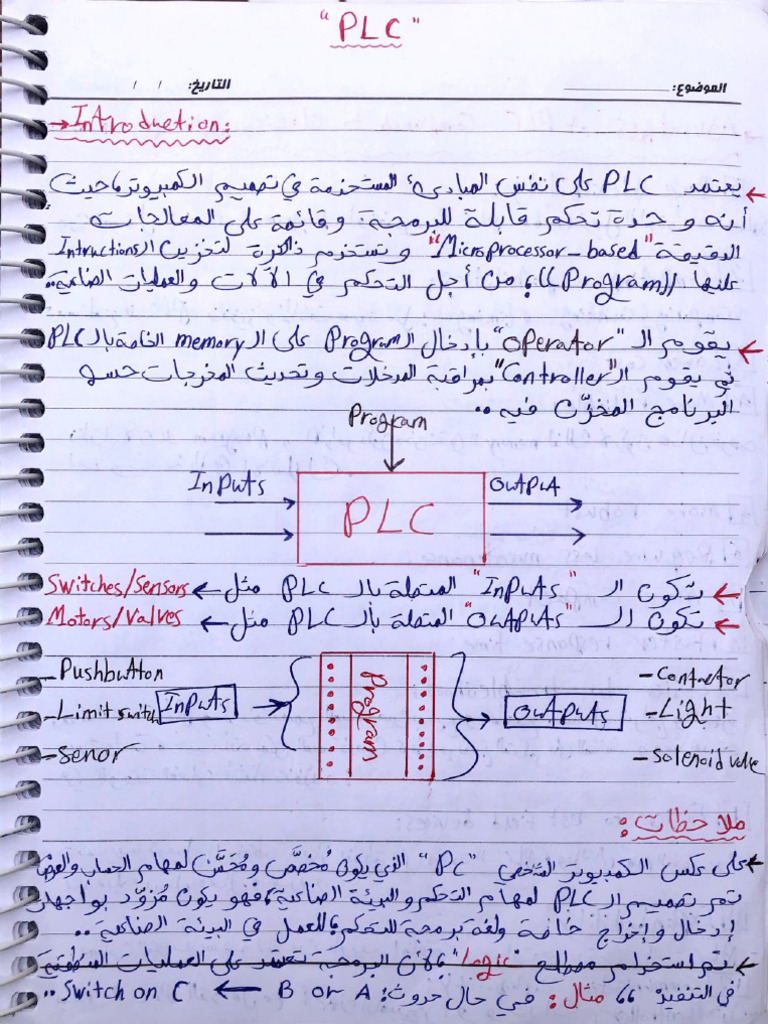 "PLC"
الموضوع: التاريخ: / /
→Introduction:
← يعتمد PLC على نفس المبادئ المستخدمة في تصميم الكمبيوتر، حيث
أنه وحدة تحكم قابلة للبرمجة وقائمة على المعالجات
الدقيقة "Microprocessor-based" وتستخدم ذاكرة لتخزين الـ Intructions
عليها ((Program))، من أجل التحكم في الآلات والعمليات الصناعية..
← يقوم الـ "Operator" بإدخال الـ Program على الـ memory الخاصة بالـ PLC
ثم يقوم الـ "Controller" بمراقبة المدخلات وتحديث المخرجات حسب
البرنامج المخزّن فيه..
Program
InPuts
OutPut
PLC
← تكون الـ "InPuts" المتصلة بالـ PLC مثل ← Switches/Sensors
← تكون الـ "OutPuts" المتصلة بالـ PLC مثل ← Motors/Valves
-Pushbutton
-Limit switch
-Senor
InPuts
Program
OutPuts
-Contactor
-Light
-Solenoid valve
ملاحظات:
← على عكس الكمبيوتر الشخصي "PC" الذي يكون مُخصَّص ومُحَسَّن لمهام الحساب والعرض
تم تصميم الـ PLC لمهام التحكم والبيئة الصناعية، فهو يكون مُزوّد بواجهات
إدخال وإخراج خاصة ولغة برمجة للتحكم، للعمل في البيئة الصناعية..
← تم استخدام مصطلح "Logic" لأن البرمجة تعتمد على العمليات المنطقية
في التنفيذ،، مثال: في حال حدوث: A or B ← Switch on C..